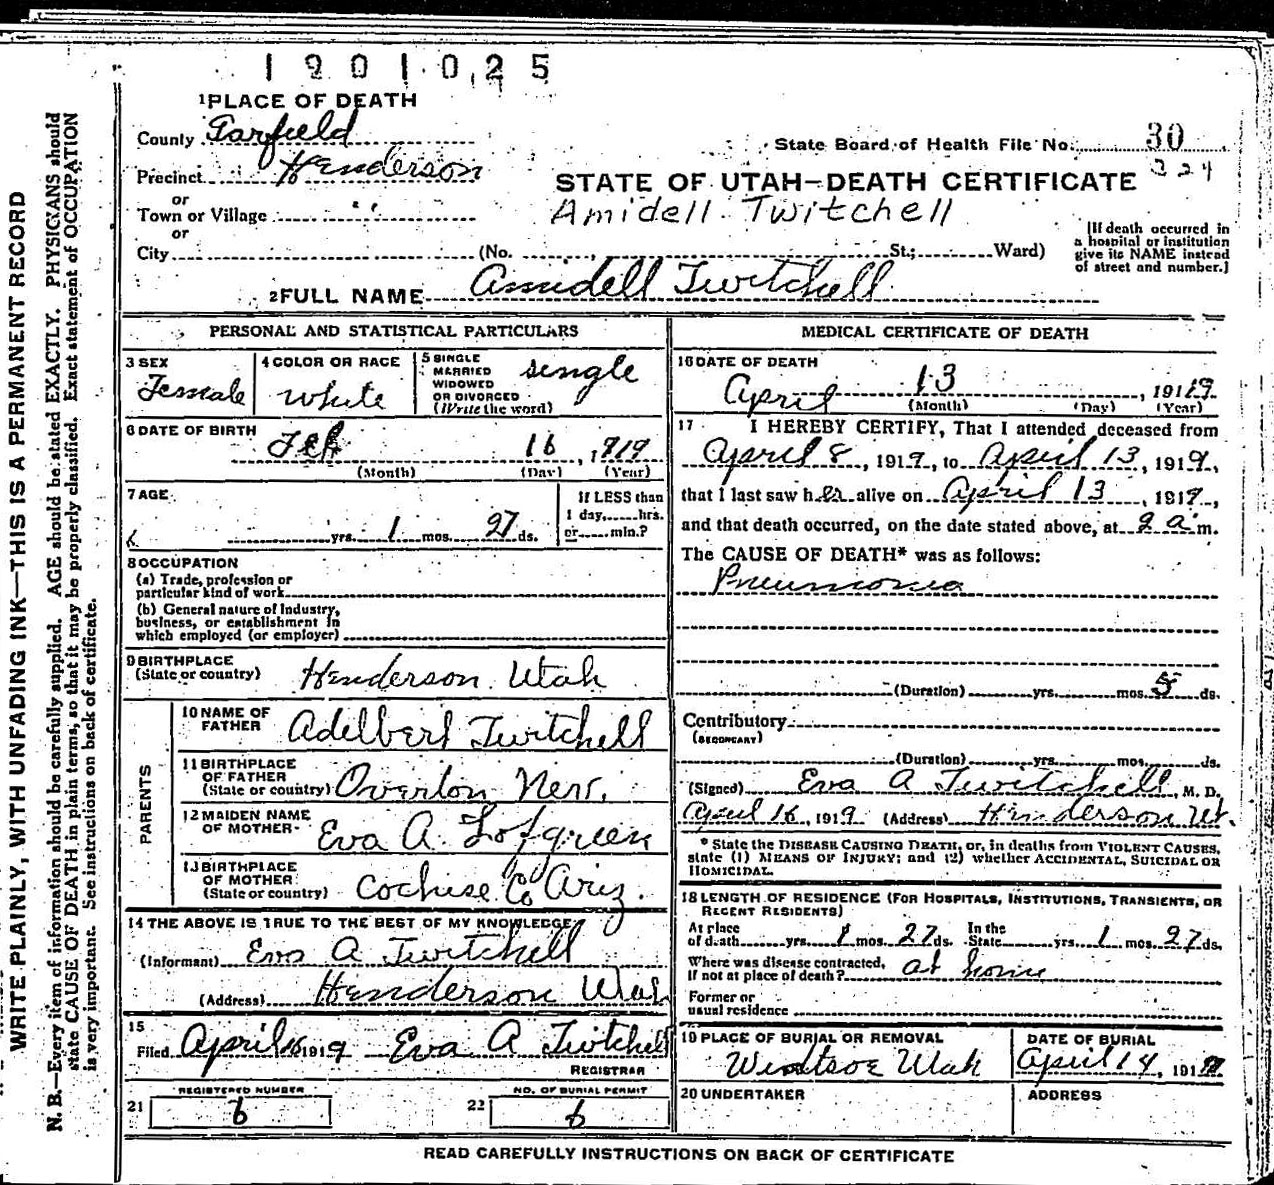 1901025
1 PLACE OF DEATH
County Garfield
State Board of Health File No. 30
324
Precinct Henderson
STATE OF UTAH—DEATH CERTIFICATE
or
Town or Village " "
Amidell Twitchell
or
City (No. , St.; Ward)
[If death occurred in
a hospital or institution
give its NAME instead
of street and number.]
2 FULL NAME Amidell Twitchell
PERSONAL AND STATISTICAL PARTICULARS
3 SEX
Female
4 COLOR OR RACE
White
5 SINGLE
MARRIED
WIDOWED
OR DIVORCED
(Write the word)
single
6 DATE OF BIRTH
Feb 16, 1919
(Month) (Day) (Year)
7 AGE
yrs. 1 mos. 27 ds.
If LESS than
1 day, hrs.
or min.?
8 OCCUPATION
(a) Trade, profession or
particular kind of work
(b) General nature of Industry,
business, or establishment in
which employed (or employer)
9 BIRTHPLACE
(State or country) Henderson Utah
PARENTS
10 NAME OF
FATHER Adelbert Twitchell
11 BIRTHPLACE
OF FATHER
(State or country) Overton Nev.
12 MAIDEN NAME
OF MOTHER Eva A. Lofgreen
13 BIRTHPLACE
OF MOTHER
(State or country) Cochise Co Ariz.
14 THE ABOVE IS TRUE TO THE BEST OF MY KNOWLEDGE
(Informant) Eva A Twitchell
(Address) Henderson Utah
15
Filed April 16 1919 Eva A Twitchell
REGISTRAR
REGISTERED NUMBER
21 6
NO. OF BURIAL PERMIT
22 6
MEDICAL CERTIFICATE OF DEATH
16 DATE OF DEATH
April 13, 1919
(Month) (Day) (Year)
17 I HEREBY CERTIFY, That I attended deceased from
April 8, 1919, to April 13, 1919,
that I last saw her alive on April 13, 1919,
and that death occurred, on the date stated above, at 2 a m.
The CAUSE OF DEATH* was as follows:
Pneumonia
(Duration) yrs. mos. 5 ds.
Contributory
(SECONDARY)
(Duration) yrs. mos. ds.
(Signed) Eva A Twitchell, M. D.
April 16, 1919 (Address) Henderson Ut.
* State the DISEASE CAUSING DEATH, or, in deaths from VIOLENT CAUSES,
state (1) MEANS OF INJURY; and (2) whether ACCIDENTAL, SUICIDAL OR
HOMICIDAL.
18 LENGTH OF RESIDENCE (FOR HOSPITALS, INSTITUTIONS, TRANSIENTS, OR
RECENT RESIDENTS)
At place In the
of death yrs. 1 mos. 27 ds. State yrs. 1 mos. 27 ds.
Where was disease contracted,
If not at place of death? at home
Former or
usual residence
19 PLACE OF BURIAL OR REMOVAL
Widtsoe Utah
DATE OF BURIAL
April 14, 1919
20 UNDERTAKER
ADDRESS
READ CAREFULLY INSTRUCTIONS ON BACK OF CERTIFICATE
WRITE PLAINLY, WITH UNFADING INK—THIS IS A PERMANENT RECORD
N. B.—Every item of information should be carefully supplied. AGE should be stated EXACTLY. PHYSICIANS should
state CAUSE OF DEATH in plain terms, so that it may be properly classified. Exact statement of OCCUPATION
is very important. See instructions on back of certificate.